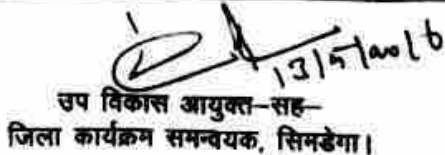 13/5/2016
उप विकास आयुक्त-सह-
जिला कार्यक्रम समन्वयक, सिमडेगा।